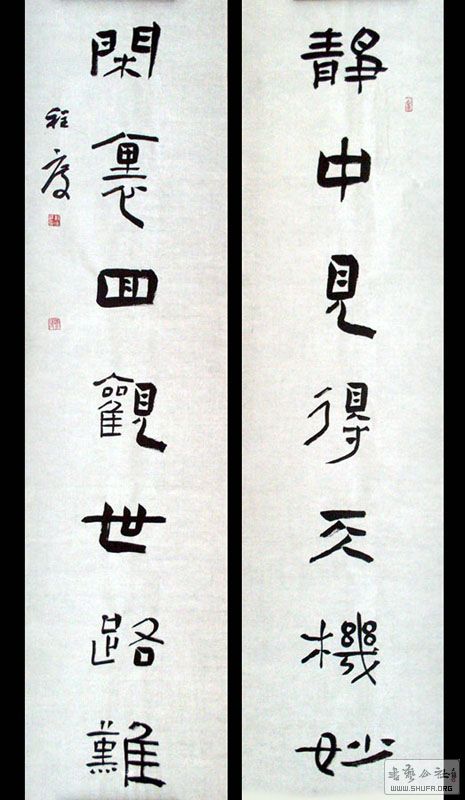 靜中見得天機妙
閑裏回觀世路難
程度
書藝公社
WWW.SHUFA.ORG